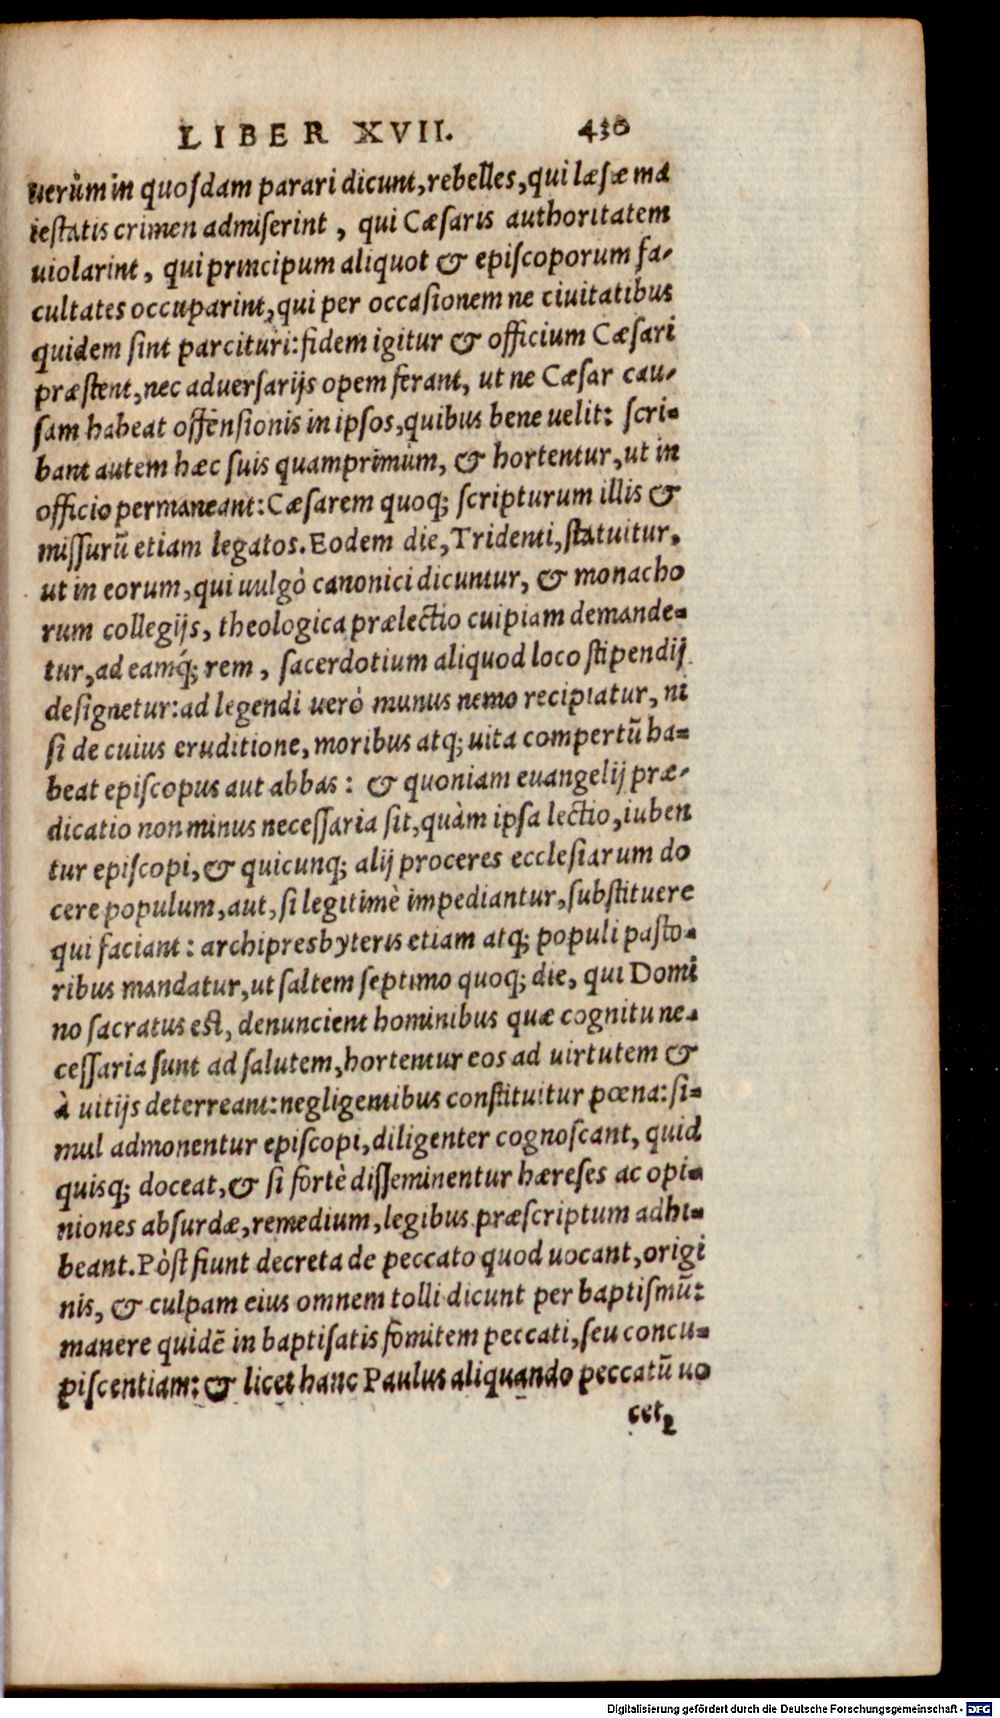 LIBER XVII. 430
uerùm in quosdam parari dicunt, rebelles, qui læsæ ma
iestatis crimen admiserint, qui Cæsaris authoritatem
uiolarint, qui principum aliquot & episcoporum fa-
cultates occuparint, qui per occasionem ne ciuitatibus
quidem sint parcituri: fidem igitur & officium Cæsari
præstent, nec aduersarijs opem ferant, ut ne Cæsar cau-
sam habeat offensionis in ipsos, quibus bene uelit: scri-
bant autem hæc suis quamprimùm, & hortentur, ut in
officio permaneant: Cæsarem quoq; scripturum illis &
missurū etiam legatos. Eodem die, Tridenti, statuitur,
ut in eorum, qui uulgò canonici dicuntur, & monacho
rum collegijs, theologica prælectio cuipiam demande-
tur, ad eamq́; rem, sacerdotium aliquod loco stipendij
designetur: ad legendi uerò munus nemo recipiatur, ni
si de cuius eruditione, moribus atq; uita compertū ha-
beat episcopus aut abbas: & quoniam euangelij præ-
dicatio non minus necessaria sit, quàm ipsa lectio, iuben
tur episcopi, & quicunq; alij proceres ecclesiarum do
cere populum, aut, si legitimè impediantur, substituere
qui faciant: archipresbyteris etiam atq; populi pasto-
ribus mandatur, ut saltem septimo quoq; die, qui Domi
no sacratus est, denuncient hominibus quæ cognitu ne-
cessaria sunt ad salutem, hortentur eos ad uirtutem &
à uitijs deterreant: negligentibus constituitur pœna: si-
mul admonentur episcopi, diligenter cognoscant, quid
quisq; doceat, & si fortè disseminentur hæreses ac opi-
niones absurdæ, remedium, legibus præscriptum adhi-
beant. Pòst fiunt decreta de peccato quod uocant, origi
nis, & culpam eius omnem tolli dicunt per baptismū:
manere quidē in baptisatis fomitem peccati, seu concu-
piscentiam: & licet hanc Paulus aliquando peccatū uo
cet,
Digitalisierung gefördert durch die Deutsche Forschungsgemeinschaft - DFG